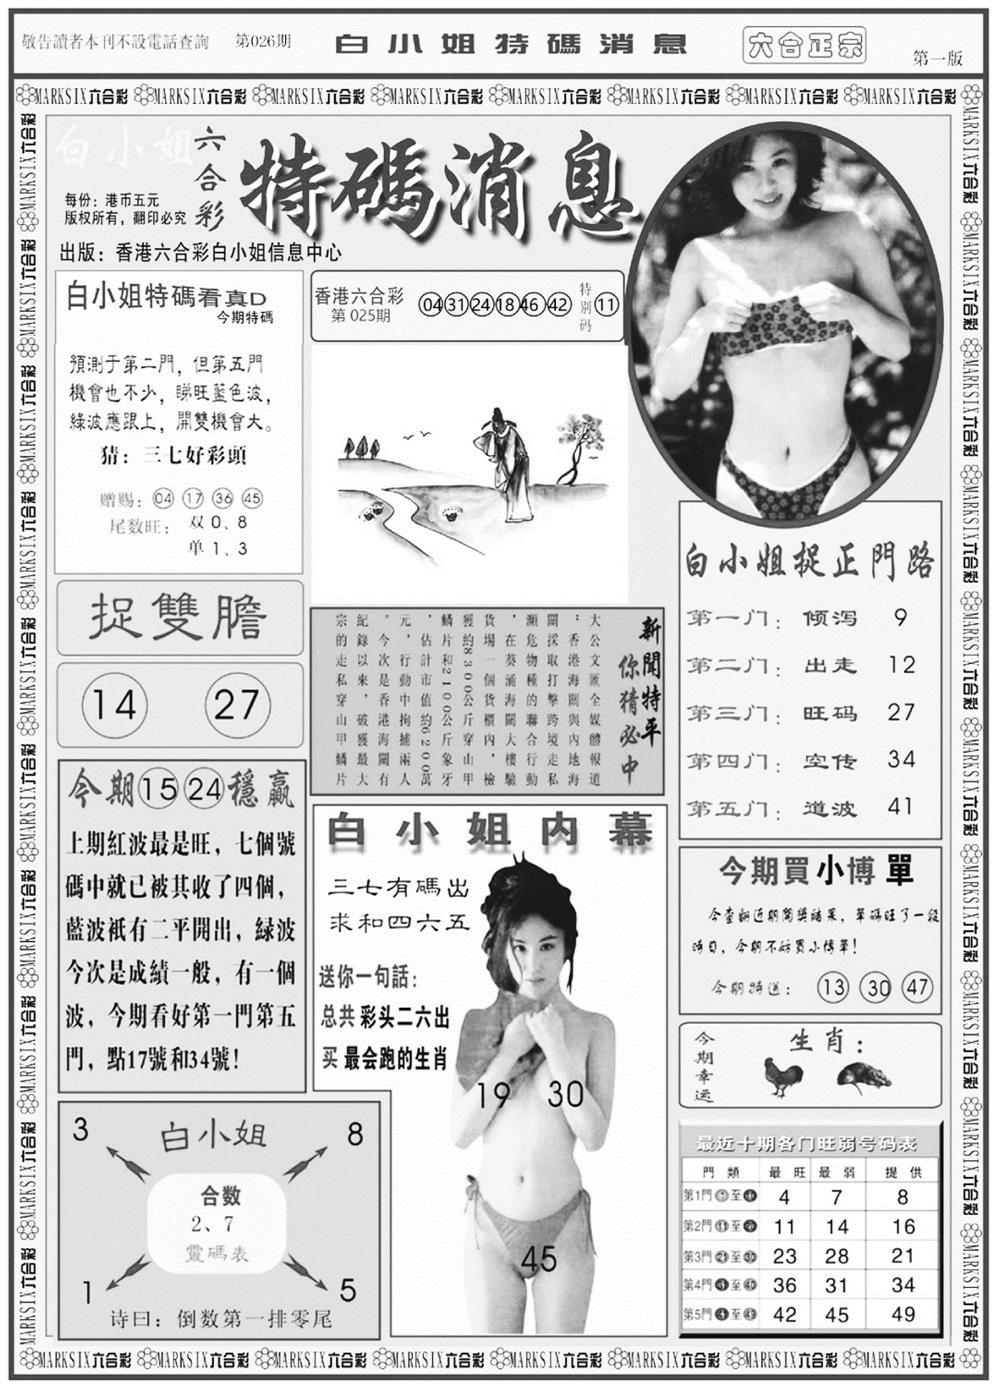 敬告讀者本刊不設電話查詢 第026期 白小姐特碼消息 六合正宗 第一版
MARKSIX六合彩 MARKSIX六合彩 MARKSIX六合彩 MARKSIX六合彩 MARKSIX六合彩 MARKSIX六合彩 MARKSIX六合彩 MARKSIX六合彩
白小姐
六合彩
特碼消息
每份：港币五元
版权所有，翻印必究
出版：香港六合彩白小姐信息中心
白小姐特碼看真D
今期特碼
預測于第二門，但第五門
機會也不少，睇旺藍色波，
綠波應跟上，開雙機會大。
猜：三七好彩頭
赠赐：04 17 36 45
尾数旺：双0、8
单1、3
香港六合彩
第 025期
04 31 24 18 46 42
特别码
11
捉雙膽
14 27
新聞特平
你猜必中
大公文匯全媒體報道
：香港海關與內地海
關採取打擊跨境走私
瀕危物種的聯合行動
，在葵涌海關大樓驗
貨場一個貨櫃內，檢
獲約8300公斤穿山甲
鱗片和2100公斤象牙
，估計市值約6200萬
元，行動中拘捕兩人
。今次是香港海關有
紀錄以來，破獲最大
宗的走私穿山甲鱗片
白小姐捉正門路
第一门：倾泻 9
第二门：出走 12
第三门：旺码 27
第四门：空传 34
第五门：道波 41
今期15 24穩贏
上期紅波最是旺，七個號
碼中就已被其收了四個，
藍波衹有二平開出，緑波
今次是成績一般，有一個
波，今期看好第一門第五
門，點17號和34號！
白小姐内幕
三七有碼出
求和四六五
送你一句話：
总共 彩头二六出
买 最会跑的生肖
19 30
45
今期買小博單
今查翻近期開獎結果，單碼旺了一段
時日，今期不妨買小博單！
今期特送：13 30 47
今期幸运
生肖：
白小姐
3 8
合数
2、7
靈碼表
1 5
诗曰：倒数第一排零尾
最近十期各门旺弱号码表
門類 最旺 最弱 提供
第1門 至 4 7 8
第2門 至 11 14 16
第3門 至 23 28 21
第4門 至 36 31 34
第5門 至 42 45 49
MARKSIX六合彩 MARKSIX六合彩 MARKSIX六合彩 MARKSIX六合彩 MARKSIX六合彩 MARKSIX六合彩 MARKSIX六合彩 MARKSIX六合彩